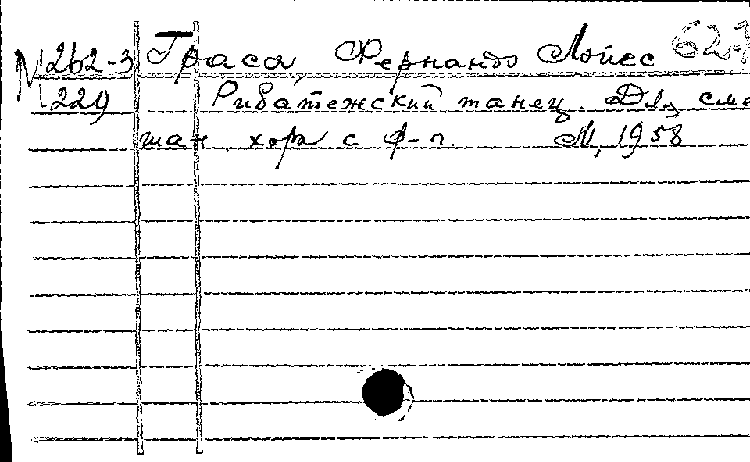 М 262-3 Граса, Фернандо Лопес 62
229 Рибатежский танец. Для сме
шан хора с ф-п. М, 1958